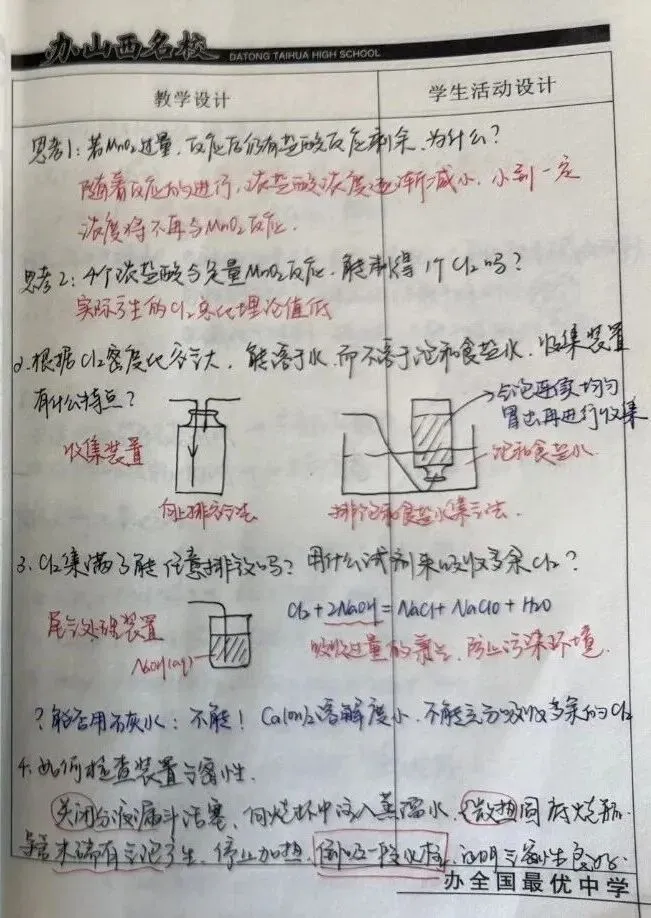 办山西名校
DATONG TAIHUA HIGH SCHOOL
教学设计
学生活动设计
思考1：若MnO₂过量，反应后仍有盐酸反应剩余，为什么？
随着反应的进行，浓盐酸浓度逐渐减小，小到一定
浓度将不再与MnO₂反应.
思考2：4个浓盐酸与足量MnO₂反应，能制得1个Cl₂吗？
实际产生的Cl₂总比理论值低
2.根据Cl₂密度比空气大，能溶于水，而不溶于饱和食盐水，收集装置
有什么特点？
收集装置
向上排空气法
气泡连续均匀
冒出再进行收集
饱和食盐水
排饱和食盐水集气法.
3.Cl₂集满了能任意排放吗？用什么试剂来吸收多余Cl₂？
尾气处理装置
NaOH(aq)
Cl₂+2NaOH=NaCl+NaClO+H₂O
吸收过量的氯气，防止污染环境.
？能否用石灰水：不能！Ca(OH)₂溶解度小，不能充分吸收多余的Cl₂
4.如何检查装置气密性.
关闭分液漏斗活塞，向烧杯中注入蒸馏水，微热圆底烧瓶.
导管末端有气泡产生，停止加热，倒吸一段水柱，证明气密性良好.
办全国最优中学